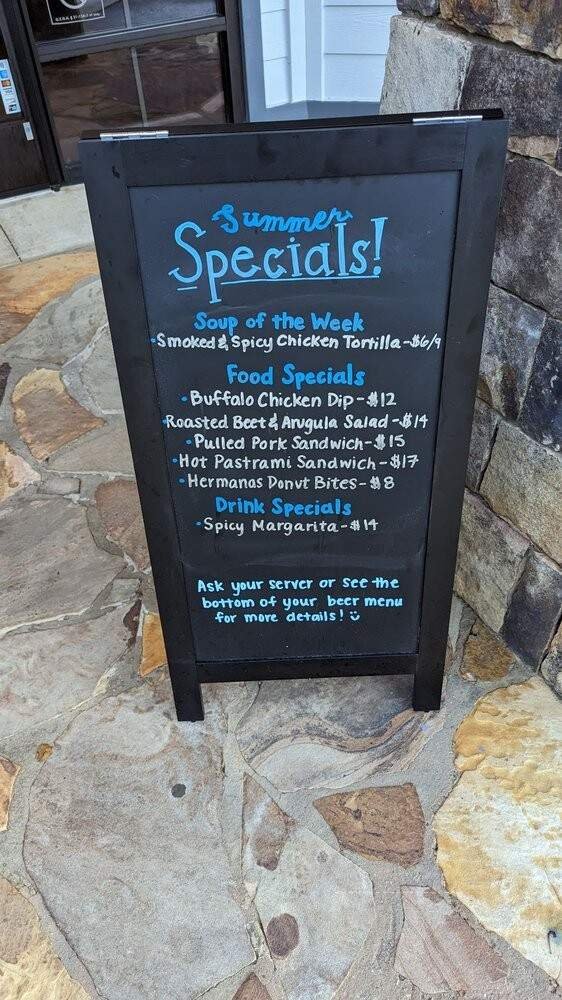 Summer
Specials!
Soup of the Week
•Smoked & Spicy Chicken Tortilla-$6/9
Food Specials
•Buffalo Chicken Dip-$12
•Roasted Beet & Arugula Salad-$14
•Pulled Pork Sandwich-$15
•Hot Pastrami Sandwich-$17
•Hermanas Donut Bites-$8
Drink Specials
•Spicy Margarita-$14
Ask your server or see the
bottom of your beer menu
for more details!